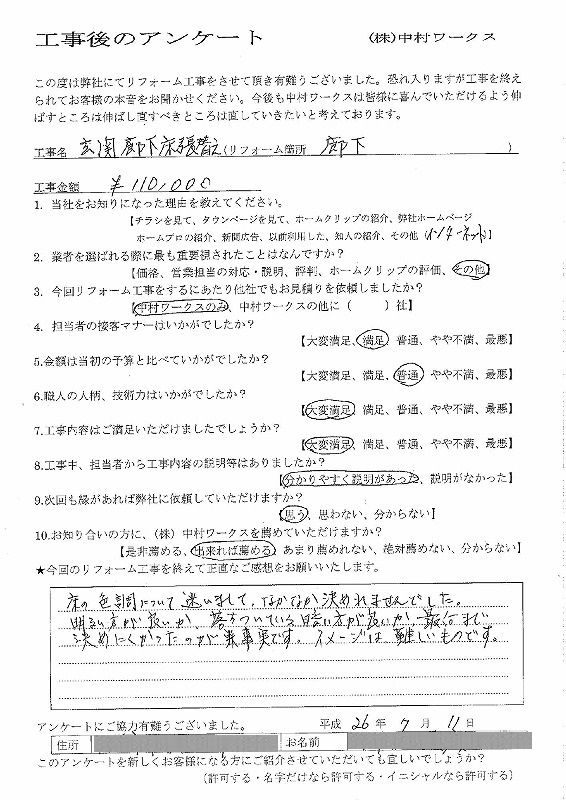 工事後のアンケート (株)中村ワークス
この度は弊社にてリフォーム工事をさせて頂き有難うございました。恐れ入りますが工事を終え
られてお客様の本音をお聞かせください。今後も中村ワークスは皆様に喜んでいただけるよう伸
ばすところは伸ばし直すべきところは直していきたいと考えております。
工事名 玄関廊下床張替え(リフォーム箇所 廊下 )
工事金額 ¥110,000
1. 当社をお知りになった理由を教えてください。
【チラシを見て、タウンページを見て、ホームクリップの紹介、弊社ホームページ
ホームプロの紹介、新聞広告、以前利用した、知人の紹介、その他(インターネット)】
2. 業者を選ばれる際に最も重要視されたことはなんですか?
【価格、営業担当の対応・説明、評判、ホームクリップの評価、その他】
3. 今回リフォーム工事をするにあたり他社でもお見積りを依頼しましたか?
【中村ワークスのみ、中村ワークスの他に( )社】
4. 担当者の接客マナーはいかがでしたか?
【大変満足、満足、普通、やや不満、最悪】
5.金額は当初の予算と比べていかがでしたか?
【大変満足、満足、普通、やや不満、最悪】
6.職人の人柄、技術力はいかがでしたか?
【大変満足、満足、普通、やや不満、最悪】
7.工事内容はご満足いただけましたでしょうか?
【大変満足、満足、普通、やや不満、最悪】
8.工事中、担当者から工事内容の説明等はありましたか?
【分かりやすく説明があった、説明がなかった】
9.次回も縁があれば弊社に依頼していただけますか?
【思う、思わない、分からない】
10.お知り合いの方に、(株)中村ワークスを薦めていただけますか?
【是非薦める、出来れば薦める、あまり薦めれない、絶対薦めない、分からない】
★今回のリフォーム工事を終えて正直なご感想をお願いいたします。
床の色調について迷いまして、なかなか決めれませんでした。
明るい方が良いか、落ちついている暗い方が良いか、最后まで
決めにくかったのが事実です。イメージは難しいものです。
アンケートにご協力有難うございました。 平成 26年 7月 11日
住所 お名前
このアンケートを新しくお客様になる方にご紹介させていただいても宜しいでしょうか?
(許可する・名字だけなら許可する・イニシャルなら許可する)